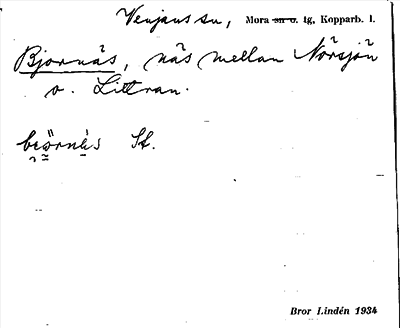 Venjans sn, Mora sn o. tg, Kopparb. l.
Björnäs, näs mellan Norsjön
o. Littran.
St.
Bror Lindén 1934